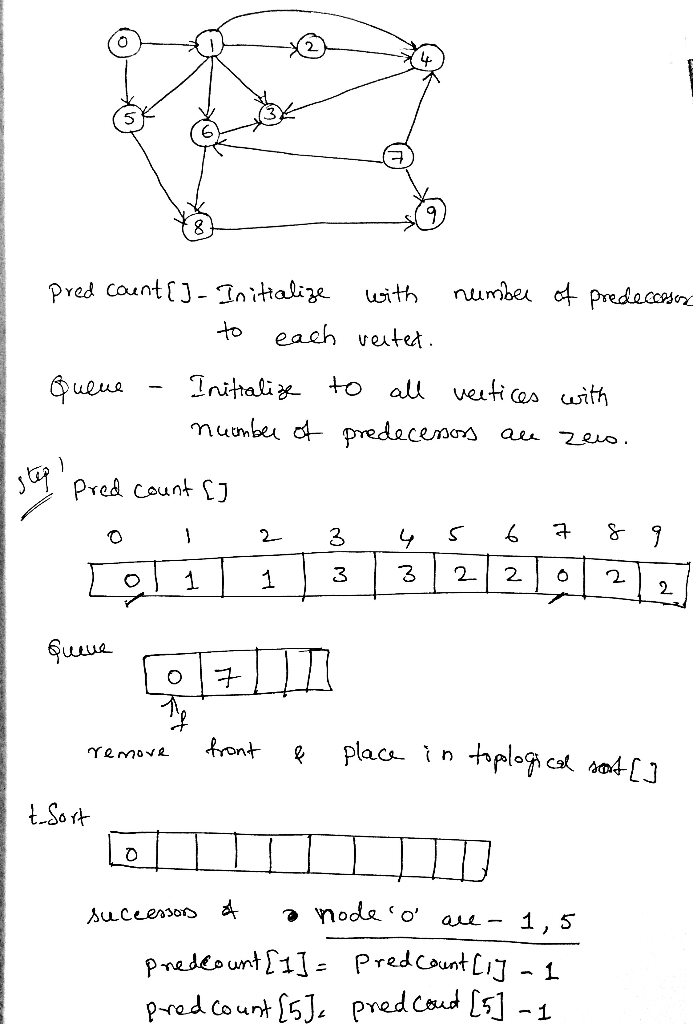 0 1 2 4
5 6 3
7
8 9
Pred count[] - Initialize with number of predecessor
to each vertex.
Queue - Initialize to all vertices with
number of predecessors are zero.
step 1
Pred count []
0 1 2 3 4 5 6 7 8 9
0 1 1 3 3 2 2 0 2 2
Queue
0 7
f
remove front & place in toplogical sort[]
t_Sort
0
successors of node '0' are - 1, 5
predcount[1] = Predcount[1] - 1
pred count[5] = pred coud [5] - 1